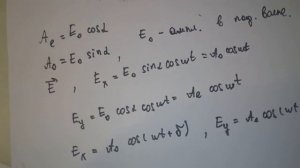 A_e = E_0 cosα
A_0 = E_0 sinα, E_0 - ампл. в пад. волне.
E⃗, E_x = E_0 sinα cosωt = A_0 cosωt
E_y = E_0 cosα cosωt = A_e cosωt
E_x = A_0 cos(ωt + δ), E_y = A_e cos(ωt)